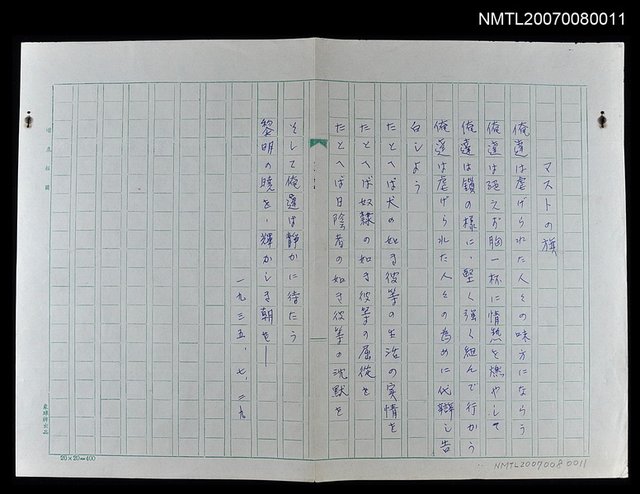 NMTL20070080011
マストの旗
俺達は虐げられた人々の味方にならう
俺達は絶えず胸一杯に情熱を燃やして
俺達は鎖の様に、堅く強く組んで行かう
俺達は虐げられた人々の為めに代辯し告
白しよう
たとへば犬の如き彼等の生活の実情を
たとへば奴隷の如き彼等の屈從を
たとへば日陰者の如き彼等の沈黙を
そして俺達は静かに待たう
黎明の暁を、輝かしき朝を—
一九三五、七、二九
20×20=400
NMTL20070080011